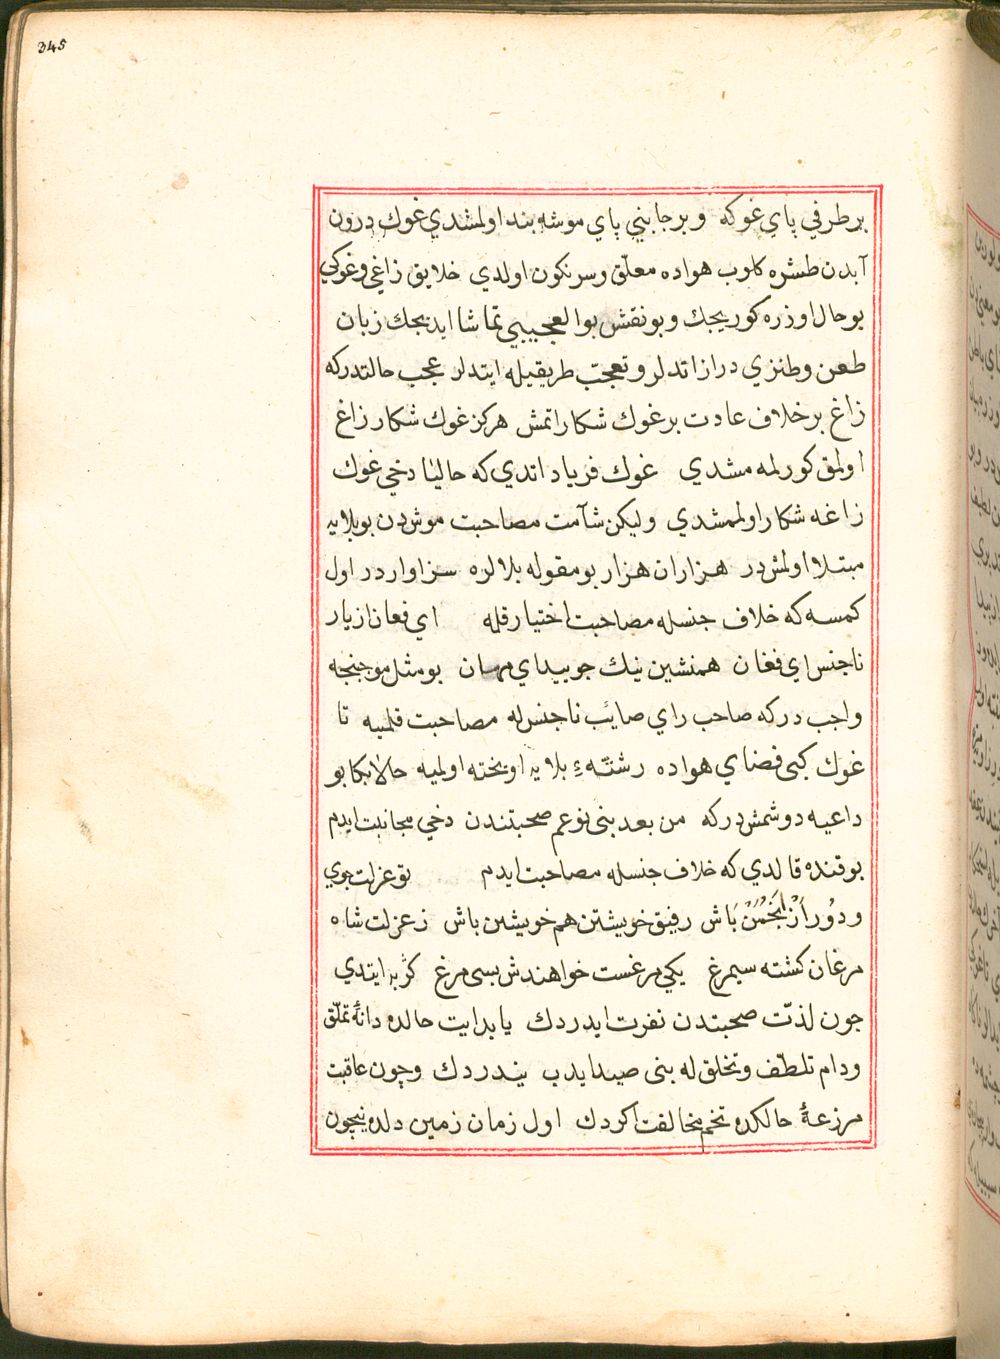 345
بر طرفي پاي غوكه و برجانبي پاي موشه بند اولمشدي غوك درون
آبدن طشره كلوب هواده معلّق و سرنكون اولدي خلايق زاغي و غوكي
بوحال اوزره كوريجك و بونقش بوالعجيبيي تماشا ايديجك زبان
طعن و طنزي دراز اتديلر و تعجّب طريقيله ايتديلر عجب حالتدركه
زاغ بر خلاف عادت بر غوك شكار اتمش هركز غوك شكار زاغ
اولمق كورلمه مشدي غوك فرياد اتدي كه حاليا دخي غوك
زاغه شكار اولممشدي وليكن شآمت مصاحبت موشدن بوبلايه
مبتلا اولمشدر هزاران هزار بومقوله بلالره سزاواردر اول
كمسه كه خلاف جنسله مصاحبت اختيار قله اي فغان از يار
ناجنس اي فغان همنشين نيك جوييد اي مهان بومثل موجنجه
واجب دركه صاحب راي صايب ناجنس له مصاحبت قلميه تا
غوك كبي فضاي هواده رشتۀ بلايه اويخته اولميه حالا بكا بو
داعيه دوشمش دركه من بعد بني نوعم صحبتندن دخي مجانبت ايدم
بوقنده قالدي كه خلاف جنسله مصاحبت ايدم تو عزلت جوي
و دُور اَز اَنجُمَنْ بَاش رفيق خويشتن هم خويشتن باش ز عزلت شاه
مرغان كشته سيمرغ يكي مرغست خواهندش بسي مرغ كربه ايتدي
چون لذّت صحبتدن نفرت ايدردك يا بدايت حالده دانۀ تملّق
ودام تلطّف و تخلق له بني صيد ايدب يندردك و چون عاقبت
مرزعۀ حالكده تخم مخالفت اكردك اول زمان زمين دلده نيچون